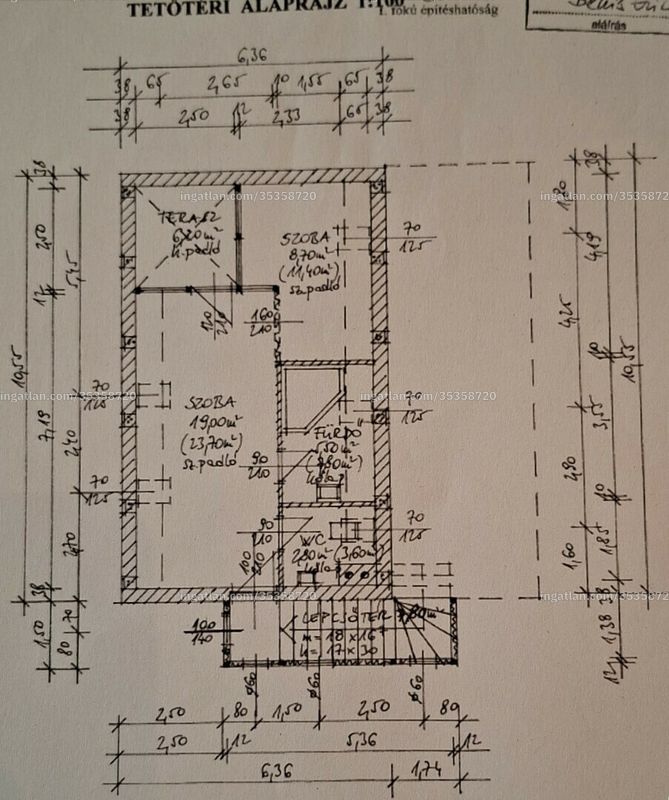 TETŐTÉRI ALAPRAJZ 1:100
I. fokú építéshatóság
aláírás
6,36
38 65 2,65 10 1,55 65 38
38 2,50 12 2,33 65 38
ingatlan.com/35358720
ingatlan.com/35358720
ingatlan.com/35358720
TERASZ
6,20m²
k.padló
SZOBA
8,70m²
(11,40m²)
sz.padló
70
125
120
210
160
210
ingatlan.com/35358720
ingatlan.com/35358720
ingatlan.com/35358720
70
125
70
125
SZOBA
19,00m²
(23,70m²)
sz.padló
FÜRDŐ
90
210
70
125
90
210
100
210
WC
2,80m² (3,60m²)
70
125
ingatlan.com/35358720
ingatlan.com/35358720
ingatlan.com/35358720
100
140
LÉPCSŐTÉR
m=18×16
k=17×30
38 2,50 12 7,19 38 1,50
10,55
5,45 2,40 2,70 70 80
1,20 4,25 2,90 1,60
38 4,19 10 3,55 10 1,85 38 1,38 12
10,55
ø60 ø60 ø60
2,50 80 1,50 2,50 80
2,50 12 5,36 12
6,36 1,74